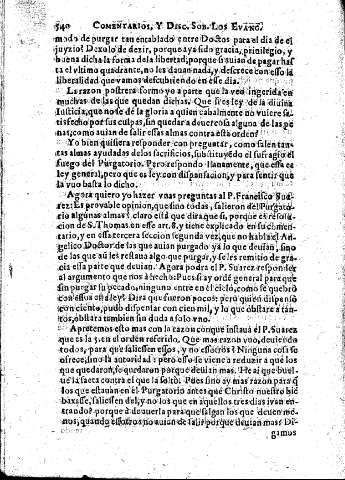 540 COMENTARIOS, Y DISC. SOB. LOS EVANG.
modo de purgar tan entablado entre Doctos para el dia de el
juyzio? Dexolo de dezir, porque aya sido gracia, priuilegio, y
buena dicha la forma de la libertad; porque si auian de pagar has
ta el vltimo quadrante, no les dauan nada, y descrece con esso la
liberalidad que vamos descubriendo en este dia.
La razon postrera formo yo a parte que la veo ingerida en
muchas de las que quedan dichas. Que si es ley de la diuina
Iusticia, que no se dè la gloria a quien cabalmente no vuiere sa-
tisfecho por sus culpas, sin quedar a deuerosa alguno de las pe
nas; como auian de salir essas almas contra esta orden?
Yo bien quisiera responder con preguntar, como salen tan-
tas almas ayudadas de los sacrificios, substituyẽdo el sufragio el
fuego del Purgatorio. Pero respondo llanamente, que essa es
ley general, pero que es ley con dispensacion, y para sentir que
la vuo basta lo dicho.
Agora quiero yo hazer vnas preguntas al P. Francisco Sua
rez: Es prouable opinion, que sino todas, salieron del Purgato-
rio algunas almas? claro està que dira que si, porque es resolu-
cion de S. Thomas en esse art. 8. y tiene explicado en su comen-
tario, y en essa tercera seccion segunda vez, que no habla el An
gelico Doctor de las que auian purgado ya lo que deuian, sino
de las que aũ les restaua algo que purgar, y se les remitio de gra-
cia essa parte que deuian. Agora podra el P. Suarez responder
al argumento que nos à hecho: Pues si ay ordẽ general para que
sin purgar su pecado, ninguno entre en el cielo, como se quebrò
con essos essa ley? Dira que fueron pocos: pero quien dispensò
con ciento, pudo dispensar con cien mil, y lo que obstare a tan-
tos, obstara tambien sin duda a solo vno.
Apretemos esto mas con la razon conque insta uà el P. Suarez
que es la 5. en el orden referido. Que mas razon vuo, deuiendo
todos, para que saliessen essos, y no essotros? Ninguna cosa se
ofrece, sino la autoridad: pero esso se viene a reduzir a que los
que quedaron, se quedaron porque deuian mas. He ai que buel-
ue la saeta contra el que la soltò. Pues si no ay mas razon para q̃
los que estauan en el Purgatorio antes que Christo nuestro biẽ
baxasse, saliessen del, y no los que en aquellos tres dias iuan en-
trando? porque à de auerla para que salgan los que deuen me-
nos, quando essotros no auian de salir porque deuian mas? Di-
gamos